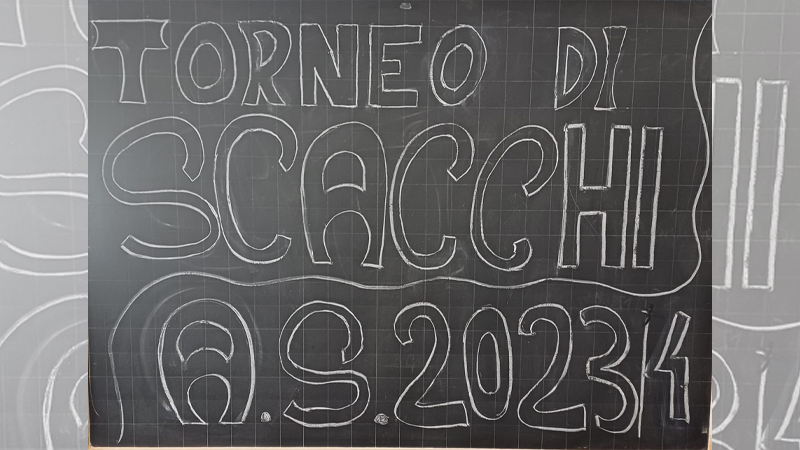 TORNEO DI
SCACCHI
A.S.2023/4